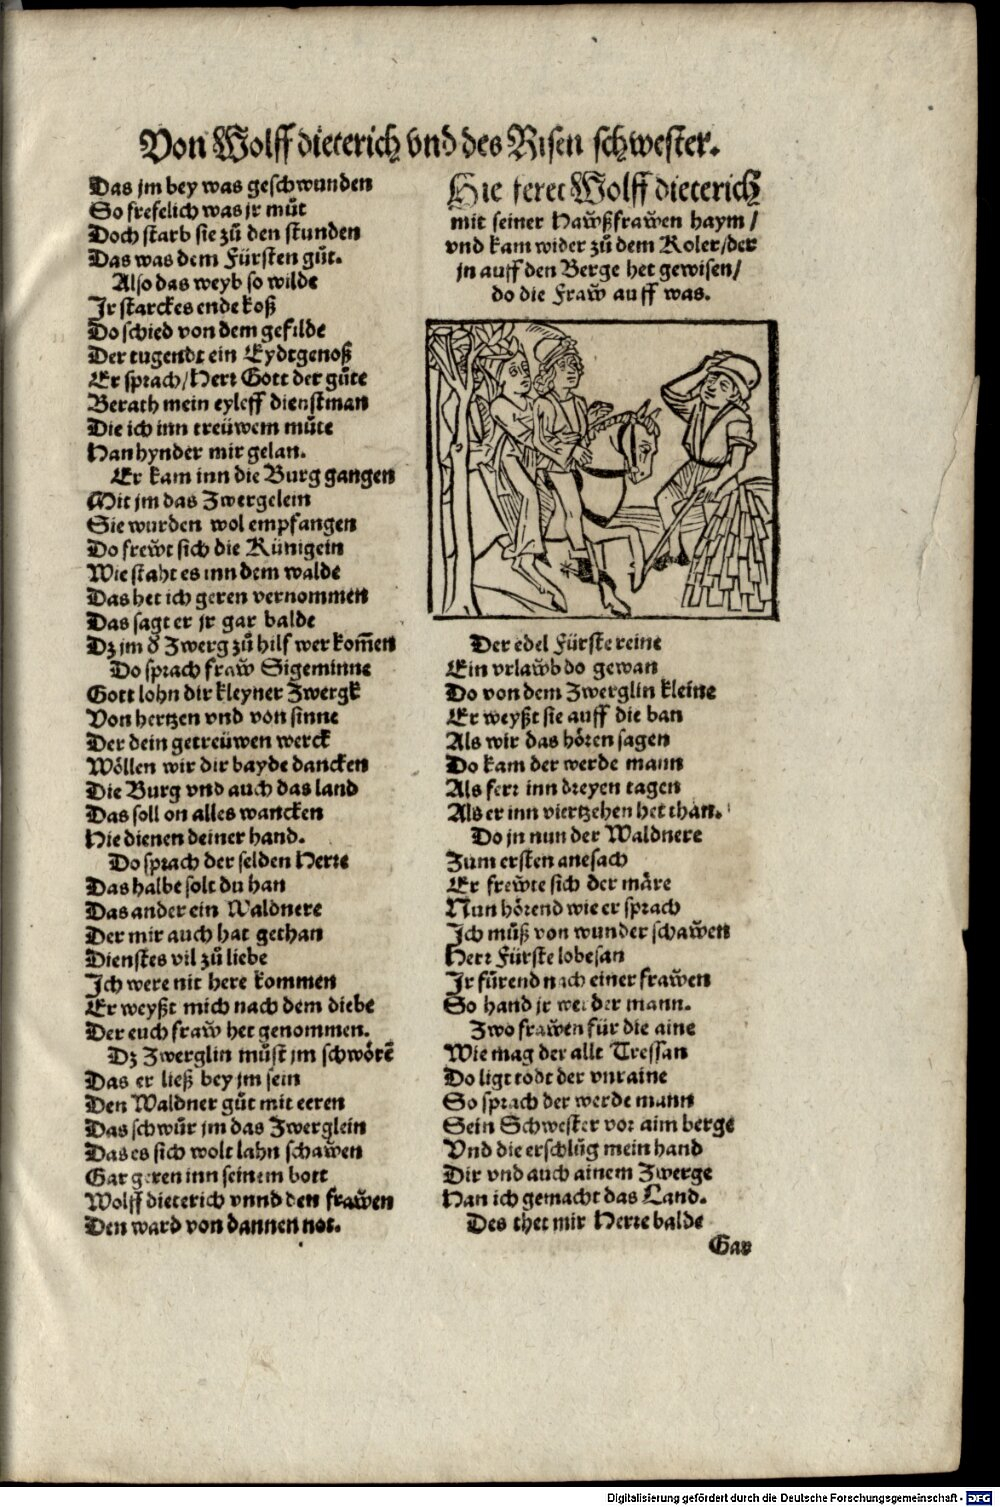 Von Wolff dieterich vnd des Risen schwester.
Das jm bey was geschwunden
So frefelich was jr můt
Doch starb sie zů den stunden
Das was dem Fürsten gůt.
Also das weyb so wilde
Jr starckes ende koß
Do schied von dem gefilde
Der tugendt ein Eydtgenoß
Er sprach/Herr Gott der gůte
Berath mein eyleff dienstman
Die ich inn treüwem můte
Han hynder mir gelan.
Er kam inn die Burg gangen
Mit jm das Zwergelein
Sie wurden wol empfangen
Do frewt sich die Künigein
Wie staht es inn dem walde
Das het ich geren vernommen
Das sagt er jr gar balde
Dz jm d̕ Zwerg zů hilf wer kom̃en
Do sprach fraw Sigeminne
Gott lohn dir kleyner Zwergk
Von hertzen vnd von sinne
Der dein getreüwen werck
Wöllen wir dir bayde dancken
Die Burg vnd auch das land
Das soll on alles wancken
Hie dienen deiner hand.
Do sprach der selden Herre
Das halbe solt du han
Das ander ein Waldnere
Der mir auch hat gethan
Dienstes vil zů liebe
Ich were nit here kommen
Er weyßt mich nach dem diebe
Der euch fraw het genommen.
Dz Zwerglin můst jm schwörẽ
Das er ließ bey jm sein
Den Waldner gůt mit eeren
Das schwůr jm das Zwerglein
Das es sich wolt lahn schawen
Gar geren inn seinem bott
Wolff dieterich vnnd den frawen
Den ward von dannen not.
Hie feret Wolff dieterich
mit seiner Hawßfrawen haym/
vnd kam wider zů dem Koler/der
jn auff den Berge het gewisen/
do die Fraw auff was.
Der edel Fürste reine
Ein vrlawb do gewan
Do von dem Zwerglin kleine
Er weyßt sie auff die ban
Als wir das hören sagen
Do kam der werde mann
Als ferr inn dreyen tagen
Als er inn viertzehen het than.
Do jn nun der Waldnere
Zum ersten anesach
Er frewte sich der märe
Nun hörend wie er sprach
Ich můß von wunder schawen
Herr Fürste lobesan
Jr fürend nach einer frawen
So hand jr wei der mann.
Zwo frawen für die aine
Wie mag der allt Tressan
Do ligt todt der vnraine
So sprach der werde mann
Sein Schwester vor aim berge
Vnd die erschlůg mein hand
Dir vnd auch ainem Zwerge
Han ich gemacht das Land.
Des thet mir Herre balde
Gar
Digitalisierung gefördert durch die Deutsche Forschungsgemeinschaft - DFG